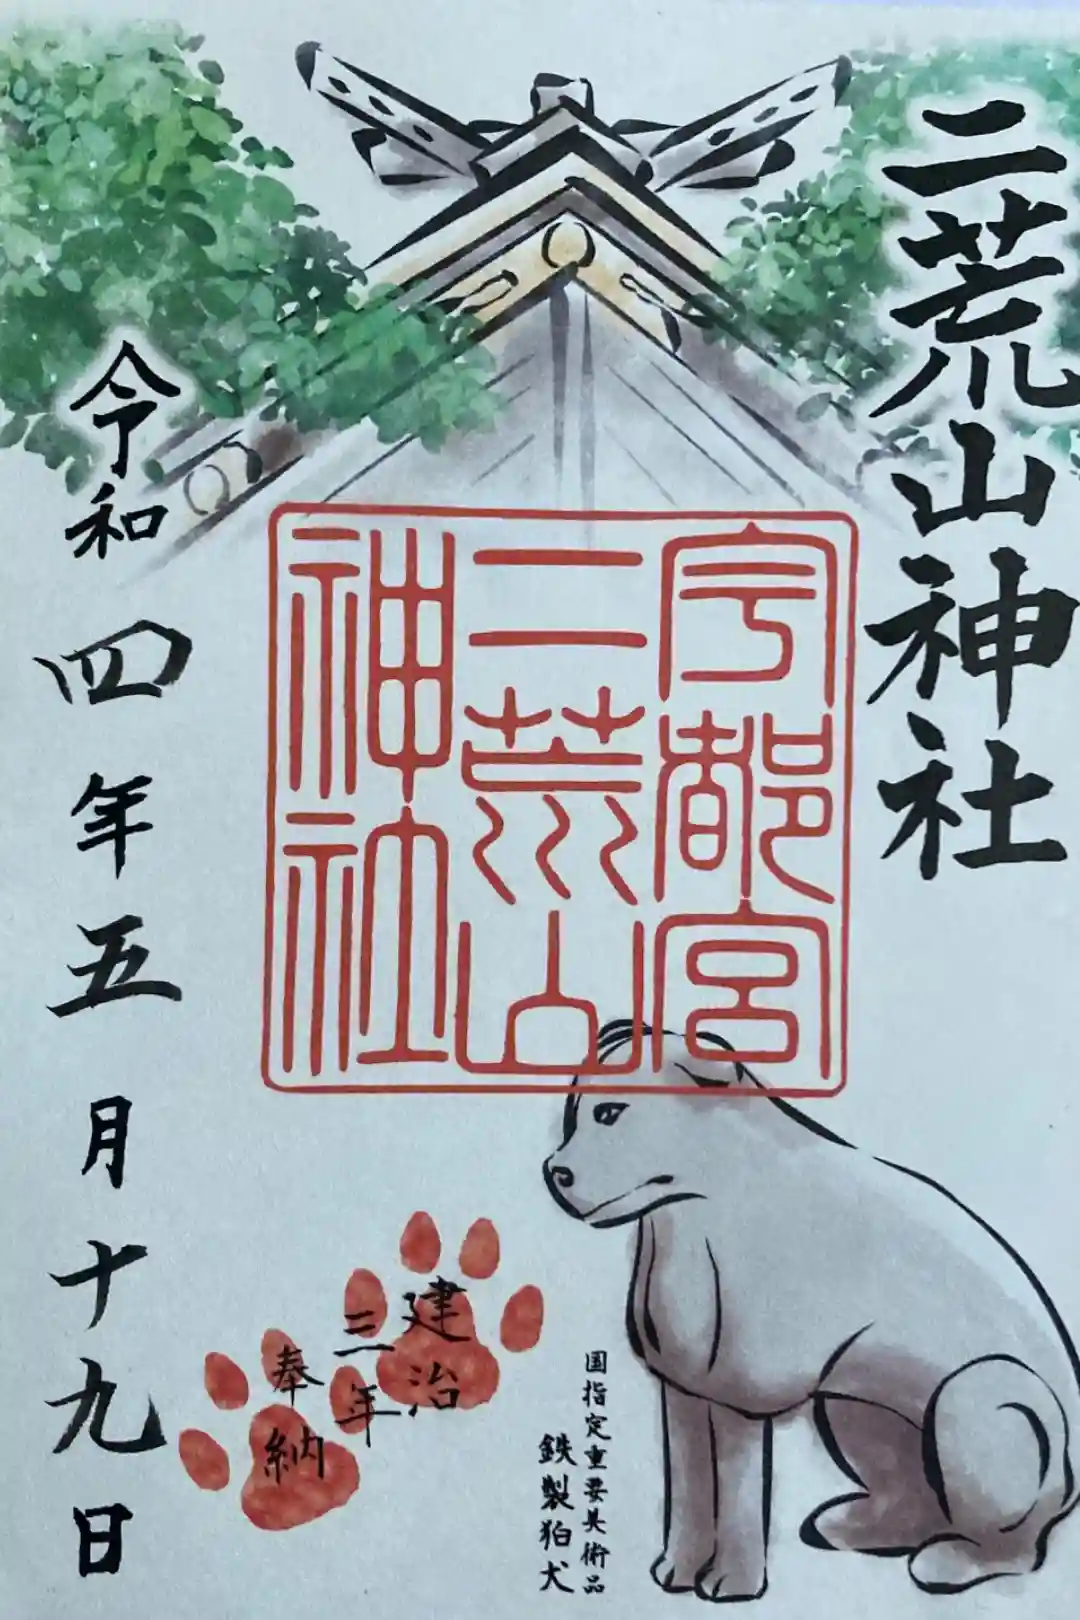 二荒山神社
宇都宮
二荒山
神社
国指定重要美術品
鉄製狛犬
建治
三年
奉納
令和四年五月十九日